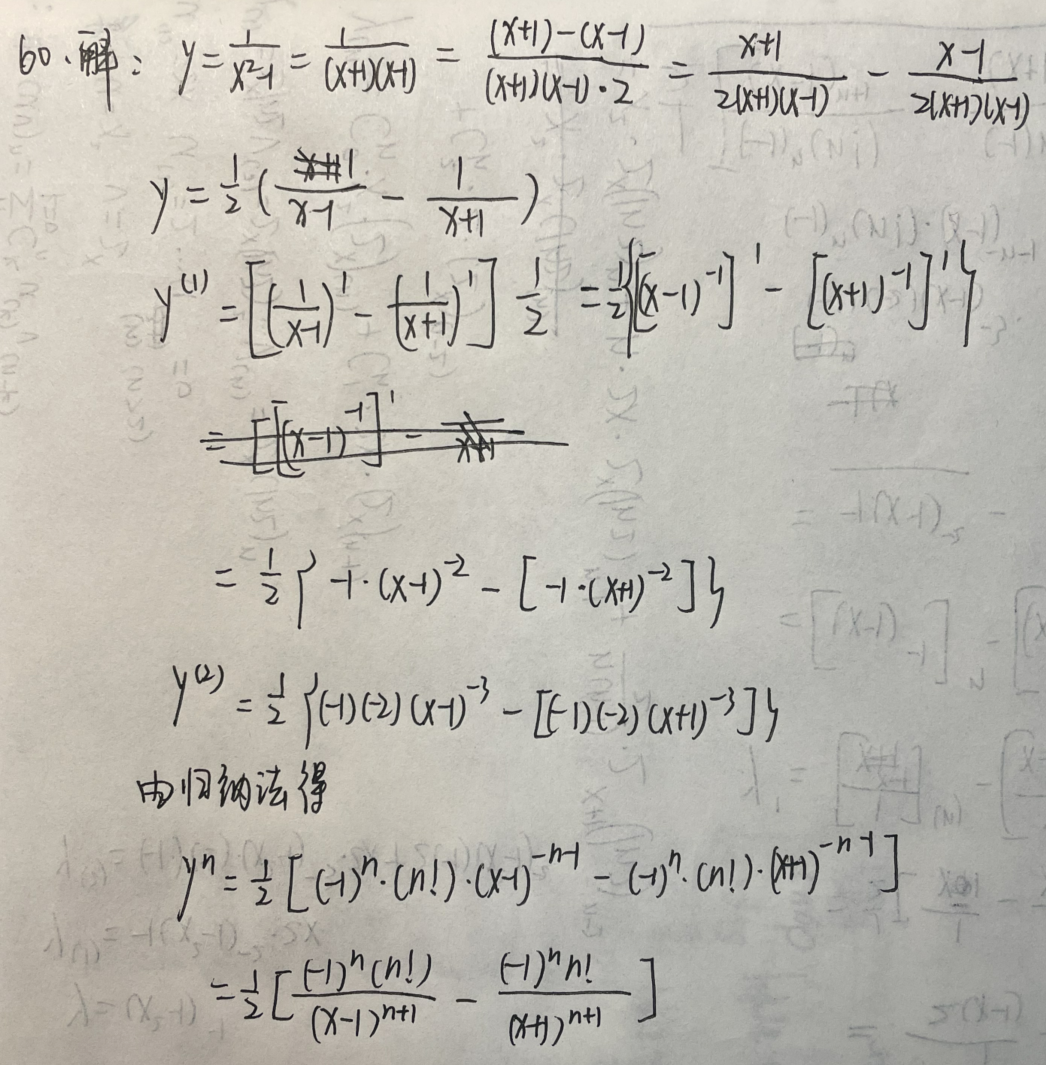 60.解: y = 1/(x²-1) = 1/((x+1)(x-1)) = ((x+1)-(x-1))/((x+1)(x-1)·2) = (x+1)/(2(x+1)(x-1)) - (x-1)/(2(x+1)(x-1))
y = 1/2 ( 1/(x-1) - 1/(x+1) )
y⁽¹⁾ = [(1/(x-1))' - (1/(x+1))'] 1/2 = 1/2{[(x-1)⁻¹]' - [(x+1)⁻¹]'}
= [[(x-1)⁻¹]' - 1/(x+1)
= 1/2 { -1·(x-1)⁻² - [-1·(x+1)⁻²]}
y⁽²⁾ = 1/2 {(-1)(-2)(x-1)⁻³ - [(-1)(-2)(x+1)⁻³]}
由归纳法得
yⁿ = 1/2 [(-1)ⁿ·(n!)·(x-1)⁻ⁿ⁻¹ - (-1)ⁿ·(n!)·(x+1)⁻ⁿ⁻¹]
= 1/2 [ (-1)ⁿ(n!)/(x-1)ⁿ⁺¹ - (-1)ⁿn!/(x+1)ⁿ⁺¹ ]